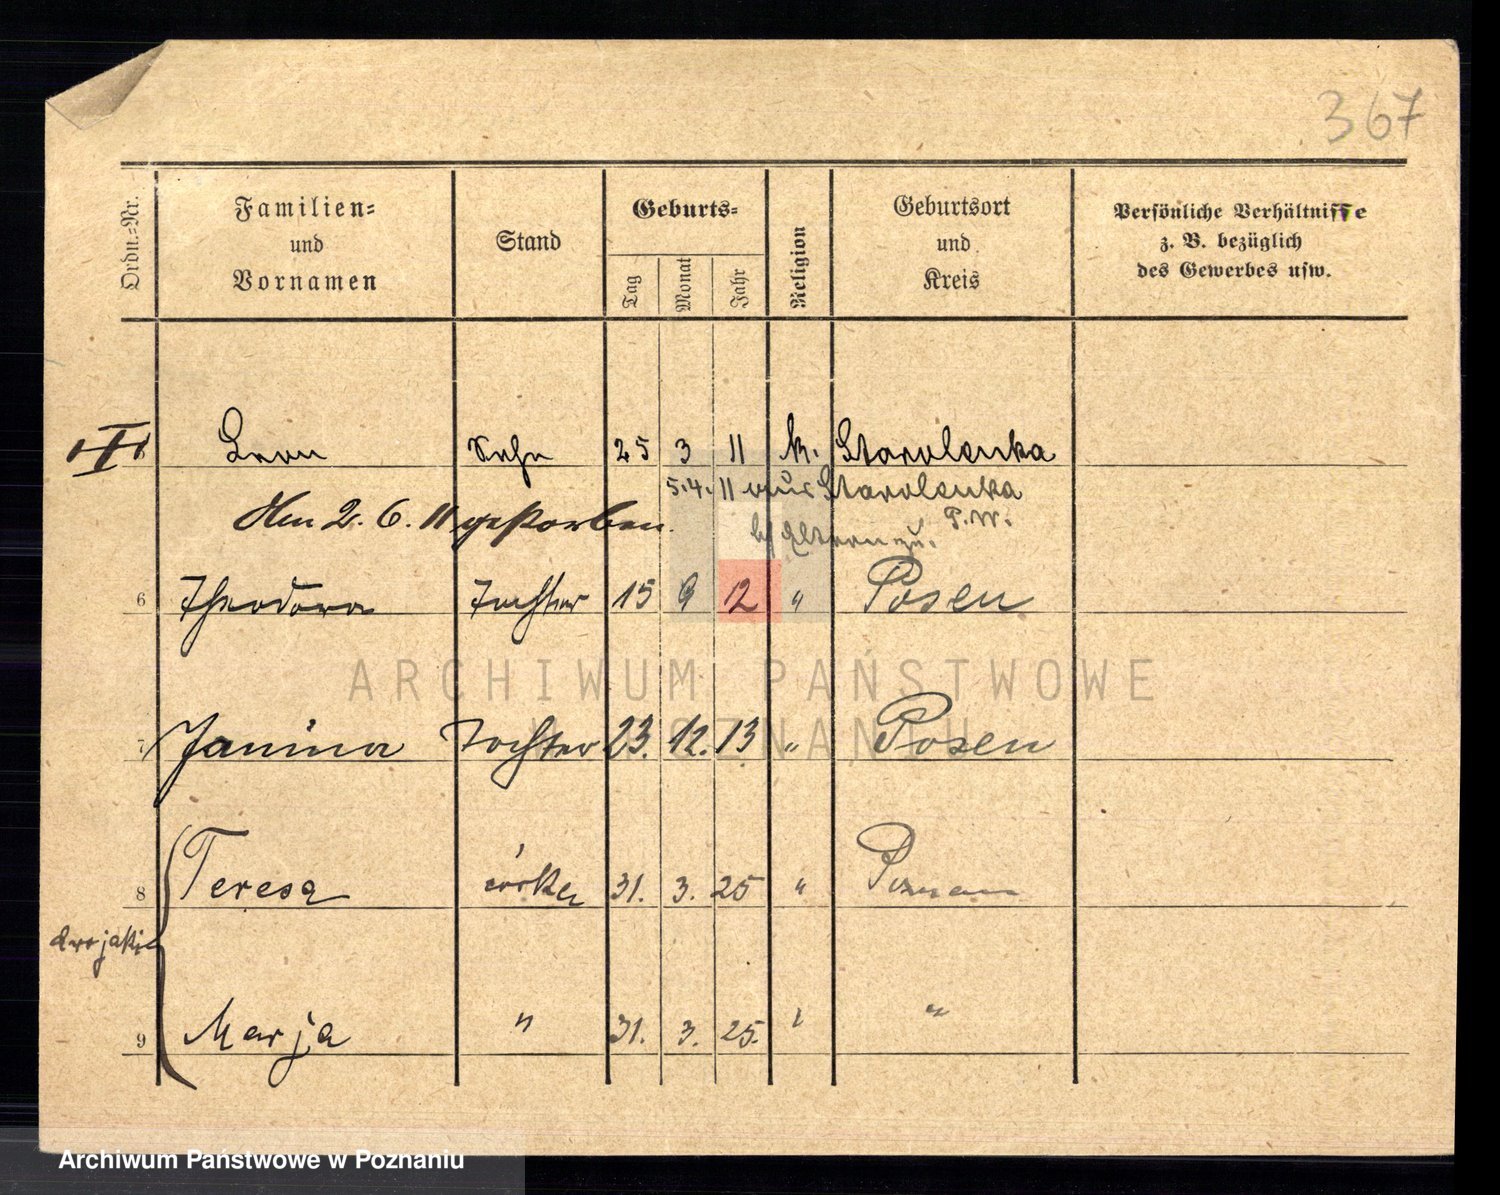 367
Ordn.-Nr.
Familien- und Vornamen
Stand
Geburts-
Tag Monat Jahr
Religion
Geburtsort und Kreis
Persönliche Verhältnisse z. B. bezüglich des Gewerbes usw.
Leon Sohn 25 3 11 k. Starolenka
5.4.11 aus Starolenka
P.W.
Am 2. 6. 11 gestorben.
6 Theodora Tochter 15 9 12 " Posen
ARCHIWUM PAŃSTWOWE
W POZNANIU
7 Janina Tochter 23. 12. 13 " Posen
8 Teresa córka 31. 3. 25 " Poznań
dwojaki
9 Marja " 31. 3. 25. " "
Archiwum Państwowe w Poznaniu